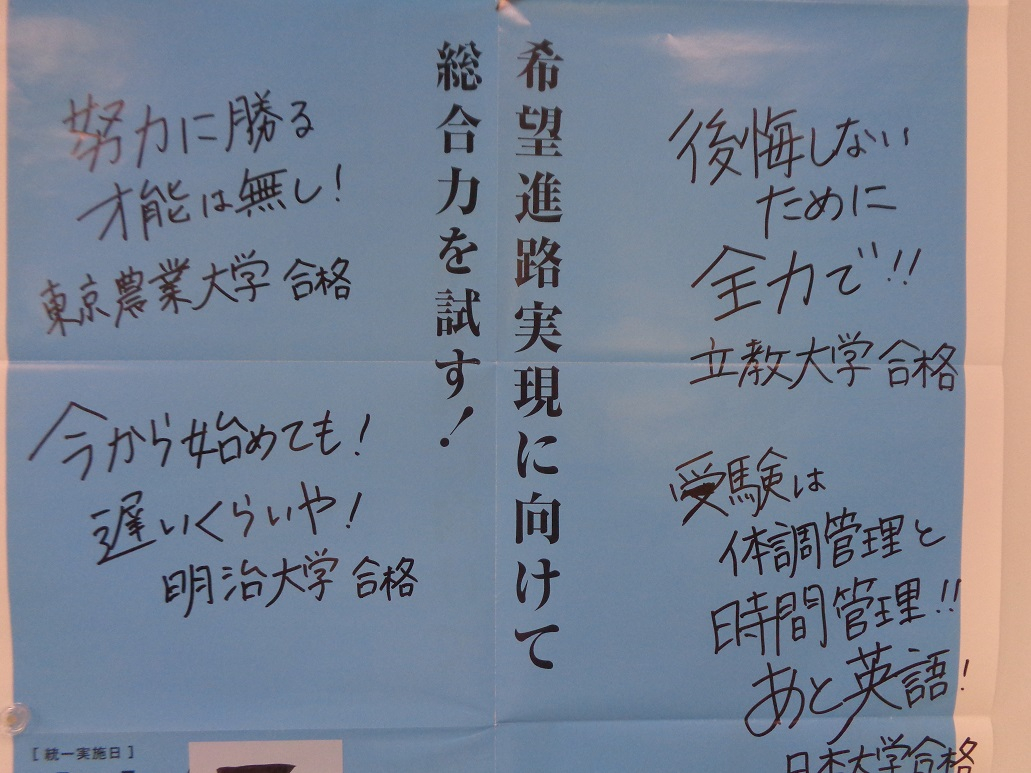 希望進路実現に向けて
総合力を試す!
後悔しない
ために
全力で!!
立教大学 合格
受験は
体調管理と
時間管理!!
あと英語!
日本大学合格
努力に勝る
才能は無し!
東京農業大学 合格
今から始めても!
遅いくらいや!
明治大学 合格
[統一実施日]